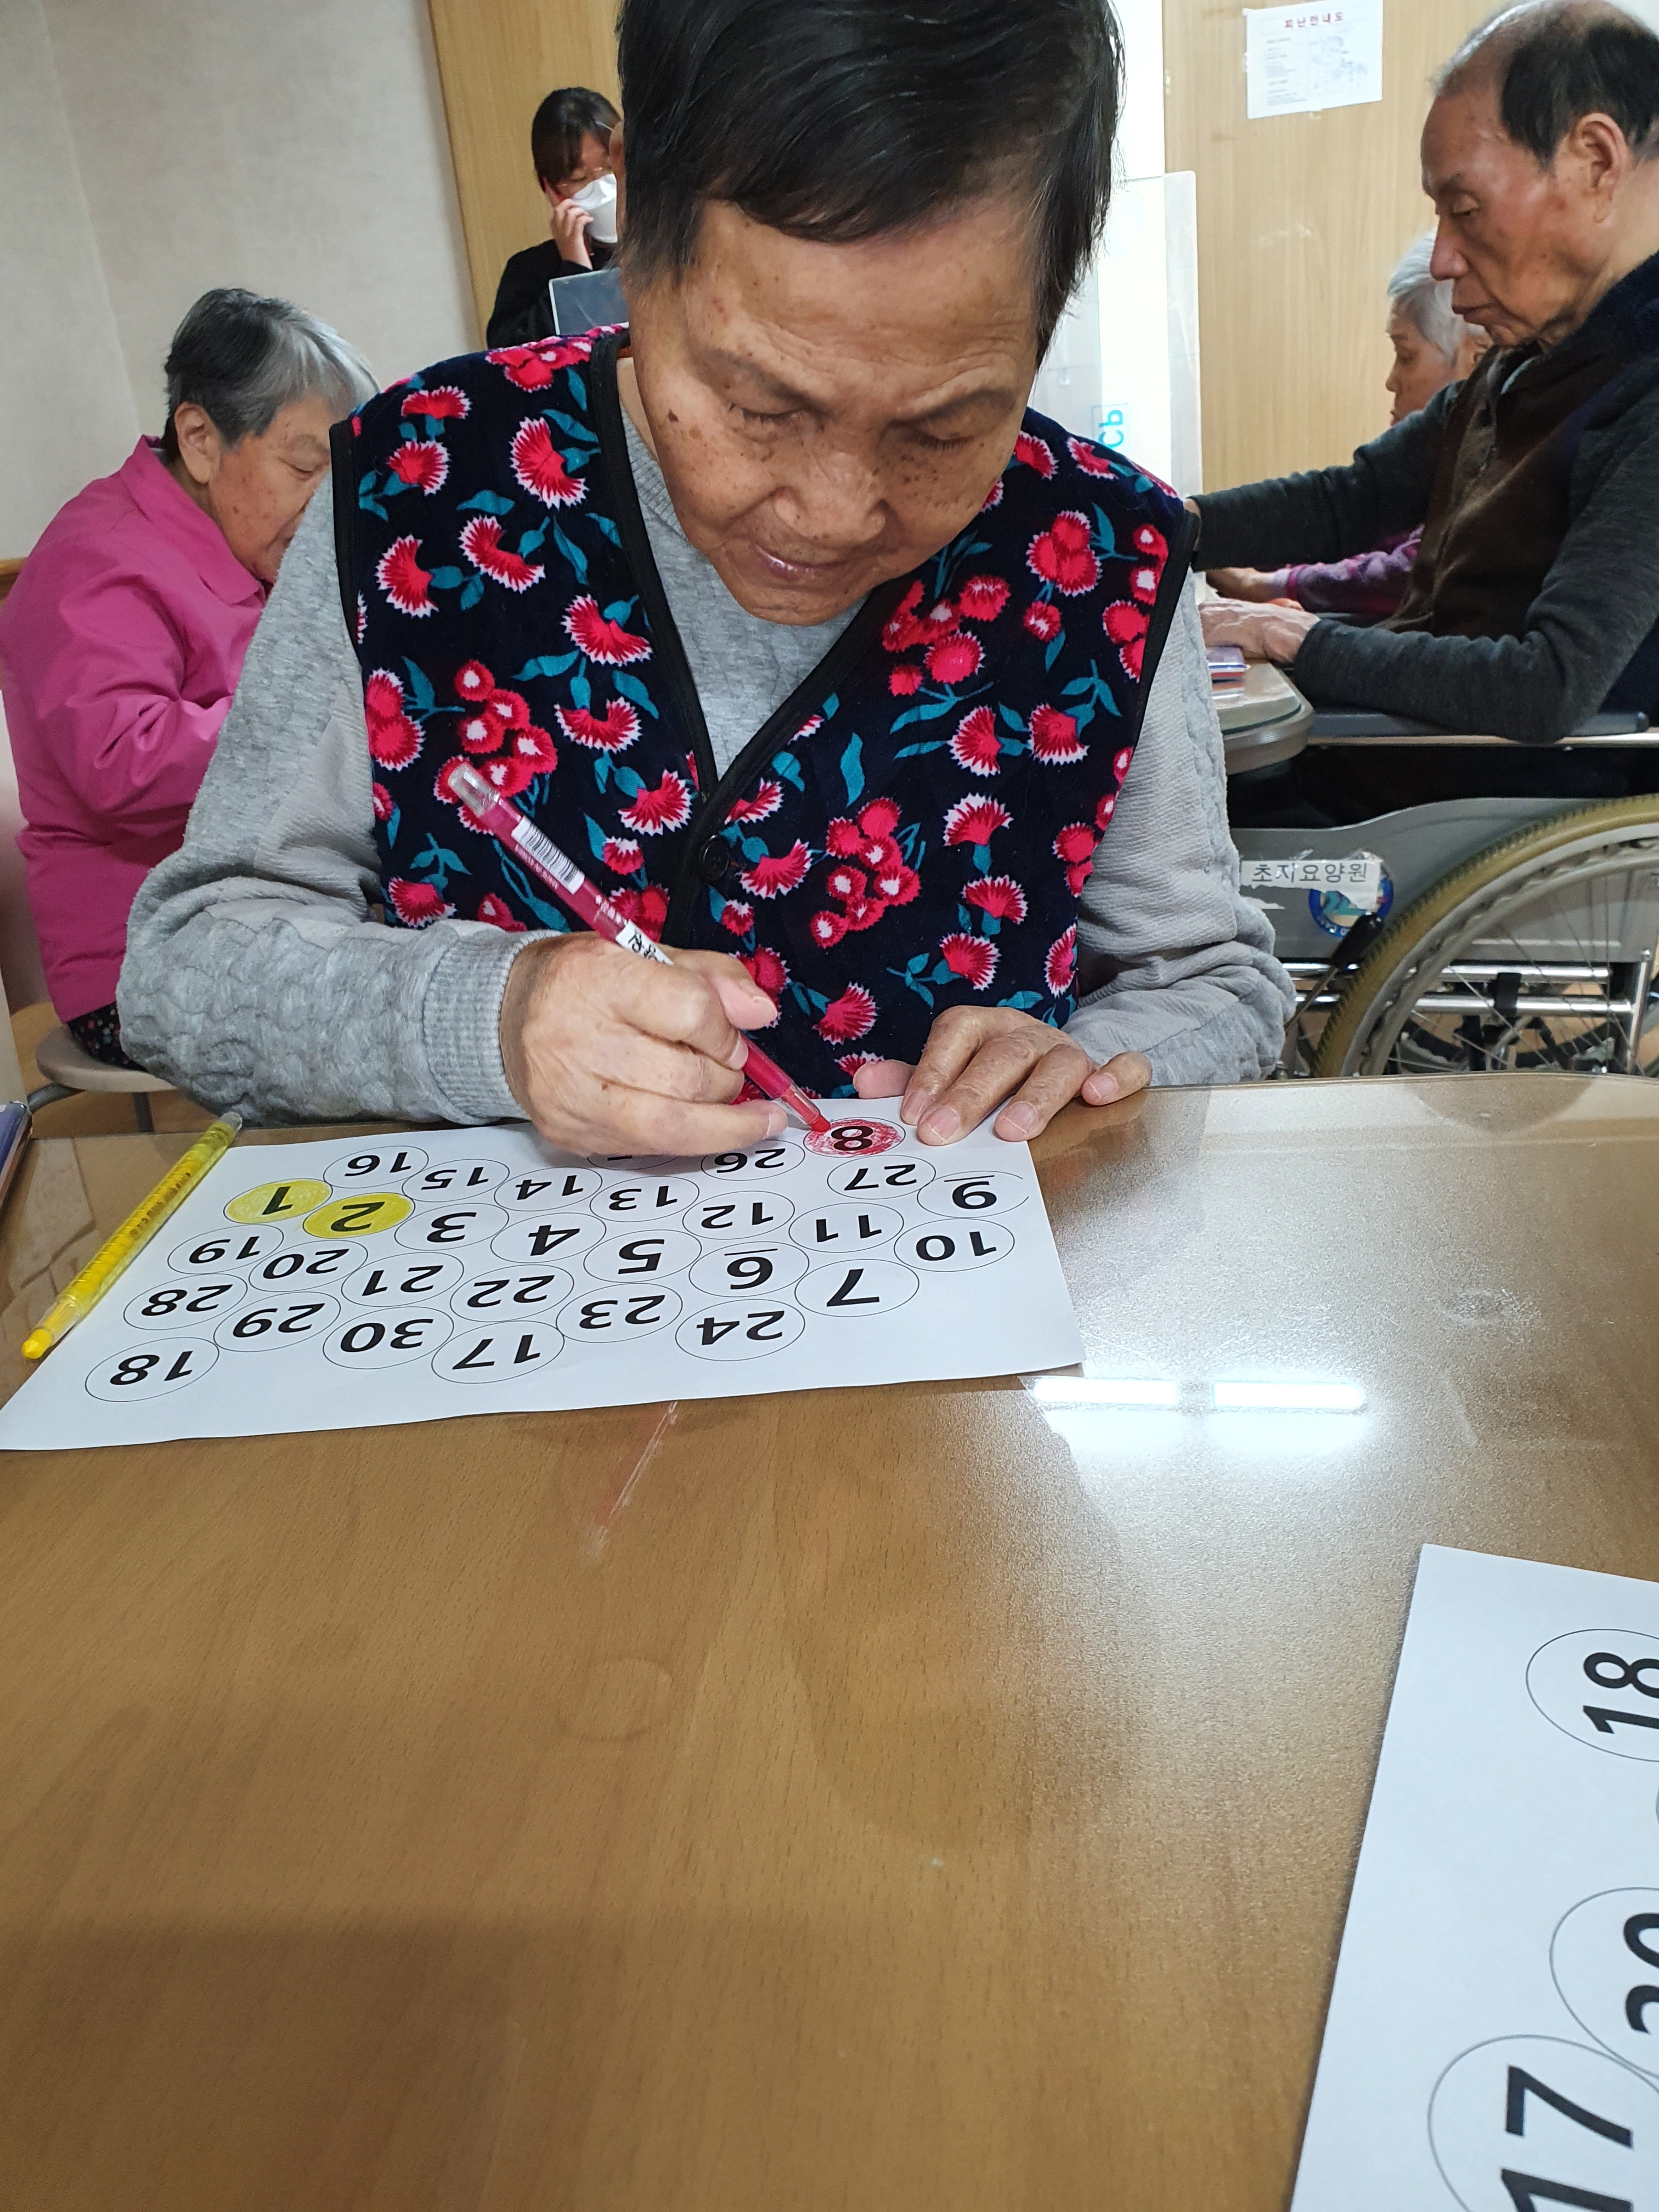 피난안내도
CP
초지요양원
8
26
27
9
16
15
14
13
12
11
10
1
2
3
4
5
6
7
19
20
21
22
23
24
28
29
30
17
18
18
17